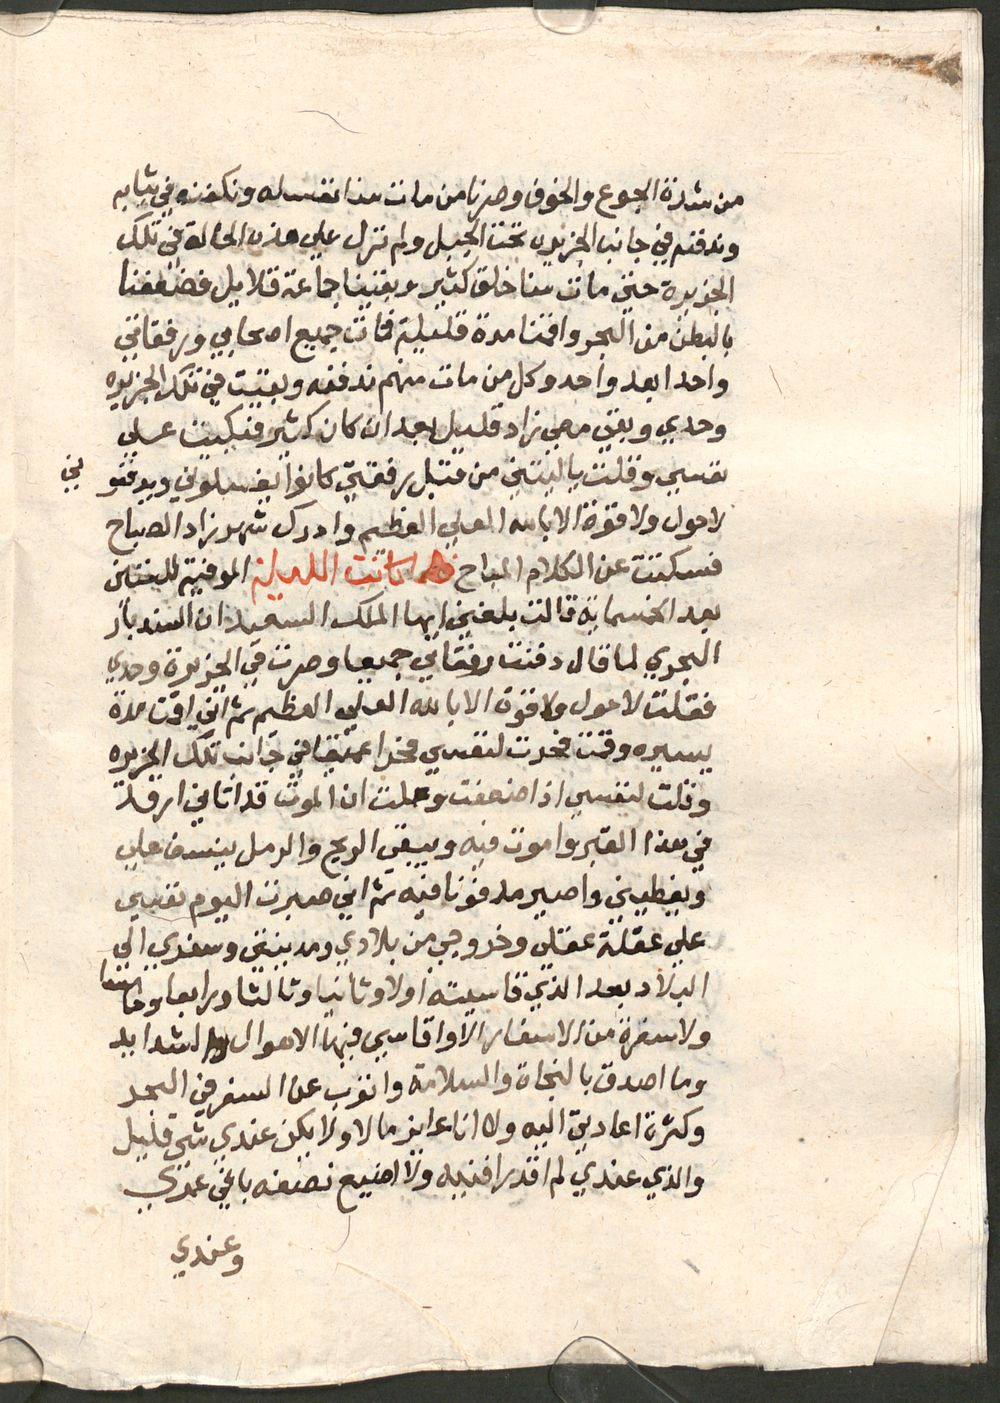 من شدة الجوع والخوف وصرنا من مات منا نغسله ونكفنه في ثيابه
وندفنه في جانب الجزيره تحت الجبل ولم نزل علي هذه الحالة في تلك
الجزيرة حتي مات منا خلق كثير وبقينا جماعة قلايل فضعفنا
بالبطن من البحر واقمنا مدة قليلة فمات جميع اصحابي ورفقاتي
واحدا بعد واحد وكل من مات منهم ندفنه وبقيت في تلك الجزيره
وحدي وبقي معي زاد قليل بعد ان كان كثير فبكيت علي
نفسي وقلت ياليتني من قبل رفقتي كانوا يغسلوني ويدفنو
ني
لاحول ولاقوة الا بالله العلي العظيم وادرك شهرزاد الصباح
فسكتت عن الكلام المباح فلما كانت الليلة الموفية للستين
بعد الخمسماية قالت بلغني ايها الملك السعيد ان السندباد
البحري لما قال دفنت رفقاتي جميعا وصرت في الجزيرة وحدي
فقلت لاحول ولاقوة الا بالله العلي العظيم ثم اني اقمت مدة
يسيره وقمت فحرت لنفسي فحرا عميقا في جانب تلك الجزيره
وقلت لنفسي اذا ضعفت وعلمت ان الموت قد اتاني ارقد
في هذا القبر واموت فيه ويبقي الريح والرمل ينسف علي
ويغطيني واصير مدفونا فيه ثم اني صرت اليوم نفسي
علي عقلة عقلي وخروجي من بلادي ومدينتي وسفري الي
البلاد بعد الذي قاسيته اولا وثانيا وثالثا ورابعا وخامسا
ولا سفرة من الاسفار الا واقاسي فيها الاهوال والشدايد
وما اصدق بالنجاة والسلامة واتوب عن السفر في البحر
وكثرة اعاديي اليه ولا انا عايز مالا ولا يكن عندي شي قليل
والذي عندي لم اقدر افنيه ولا اضيع نصفه باقي عمري
وعندي